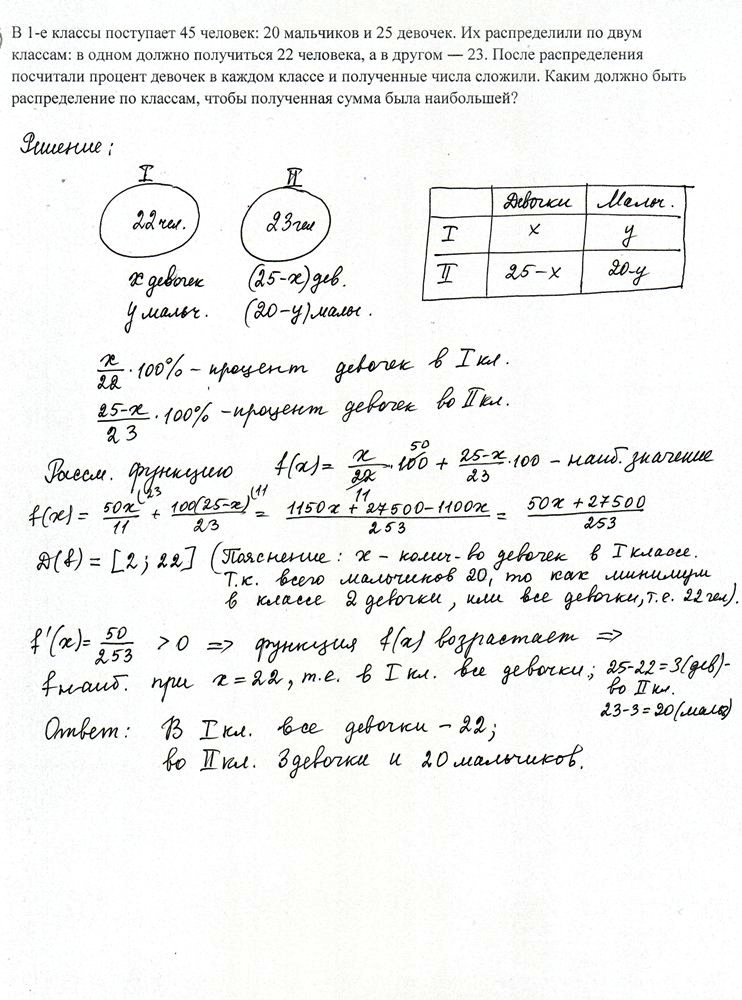 В 1-е классы поступает 45 человек: 20 мальчиков и 25 девочек. Их распределили по двум
классам: в одном должно получиться 22 человека, а в другом — 23. После распределения
посчитали процент девочек в каждом классе и полученные числа сложили. Каким должно быть
распределение по классам, чтобы полученная сумма была наибольшей?
Решение:
I II
22 чел. 23 чел
x девочек (25-x) дев.
y мальч. (20-y) мальч.
Девочки Мальч.
I x y
II 25-x 20-y
x/22 · 100% - процент девочек в I кл.
25-x/23 · 100% - процент девочек во II кл.
Рассм. функцию f(x) = x/22 · 100 + 25-x/23 · 100 - наиб. значение
50
11
f(x) = 50x/11 (23 + 100(25-x)/23 (11 = 1150x + 27500 - 1100x/253 = 50x + 27500/253
D(f) = [2; 22] (Пояснение: x - колич-во девочек в I классе.
Т.к. всего мальчиков 20, то как минимум
в классе 2 девочки, или все девочки, т.е. 22 чел).
f'(x) = 50/253 > 0 => функция f(x) возрастает =>
f наиб. при x = 22, т.е. в I кл. все девочки; 25-22=3 (дев)-
во II кл.
23-3=20 (мальч)
Ответ: В I кл. все девочки - 22;
во II кл. 3 девочки и 20 мальчиков.